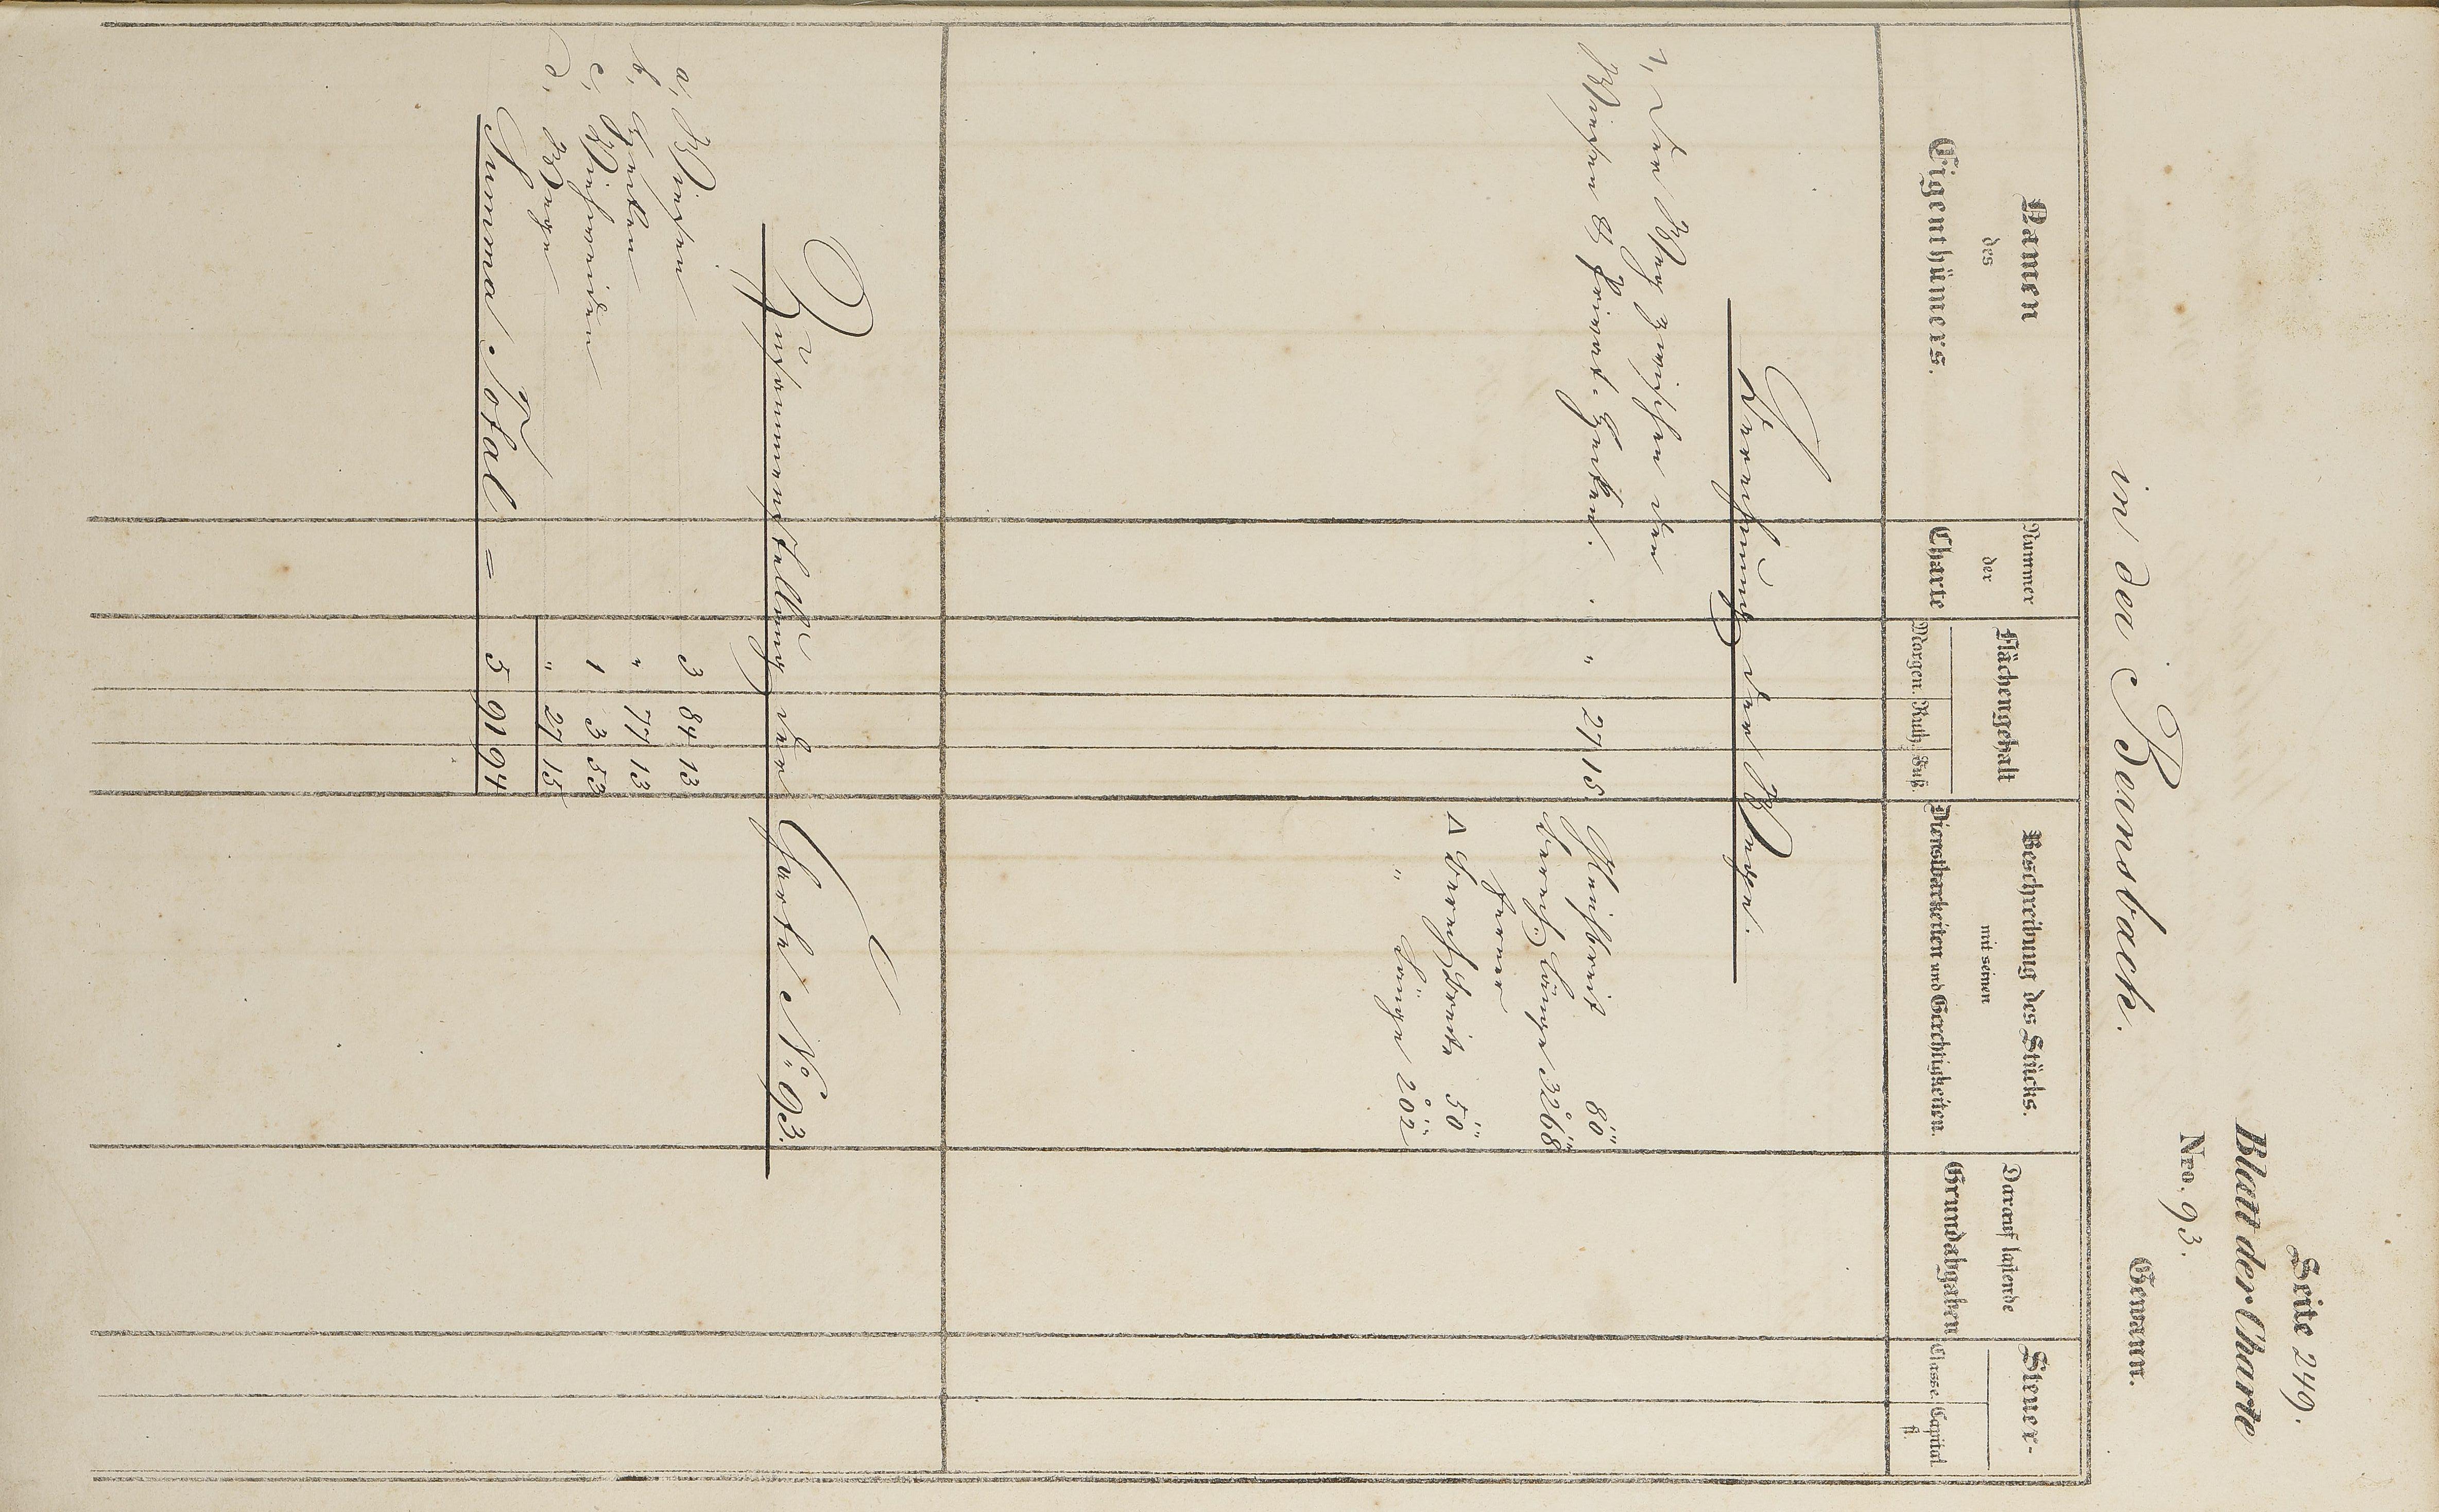 Seite 249.
Blatt der Charte
Nro. 93.
in der Bermsbach. Gewann.
Namen des Eigenthümers.
Nummer der Charte
Flächengehalt
Morgen. Ruth. Fuß.
Beschreibung des Stücks.
mit seinen
Dienstbarkeiten und Gerechtigkeiten.
Darauf lastende
Grundabgaben
Steuer-
Classe. Capital
fl.
Berechnung der Wege.
1, Der Weg zwischen den
Wiesen & Privat-Gärten. " 27 15
Gleichbreit 80
Berech: Länge 3268
ferner
Δ Berech: Breite 50
" Länge 202
Zusammenstellung der Charte No 93.
a, Wiesen 3 84 13
b, Gärten " 77 13
c, Wiesenraine 1 3 53
d, Wege " 27 15
Summa Total = 5 91 94